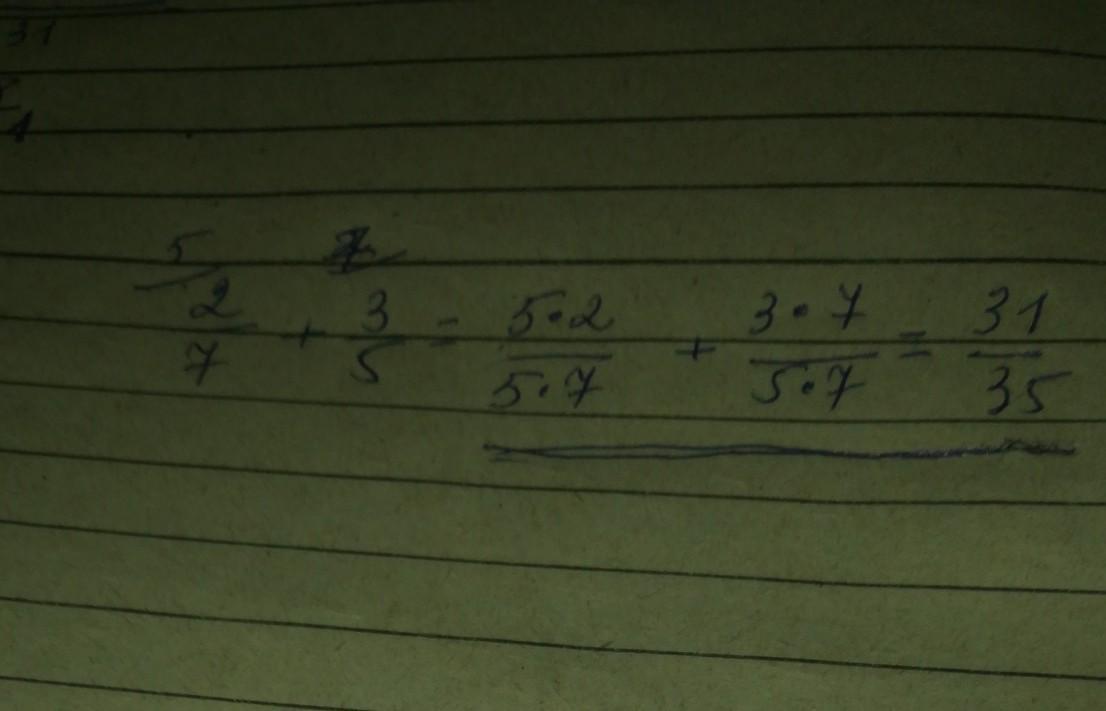 31
4
5 7
2/7 + 3/5 = 5·2/5·7 + 3·7/5·7 = 31/35